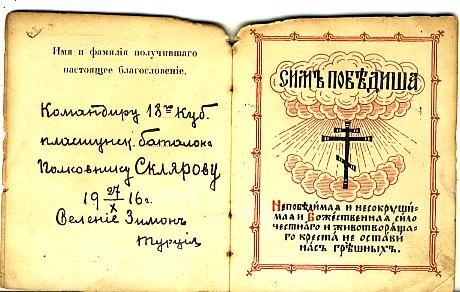 Имя и фамилія получившаго
настоящее благословеніе.
Командиру 18го Куб.
пластунск. баталіона
Полковнику Склярову
19 27/X 16 г.
Селеніе Зимонъ
Турція
СИМЪ ПОБѢДИША
Непобѣдимая и несокруши-
мая и Божественная сило
честнаго и животворяща-
го креста не остави
насъ грѣшныхъ.